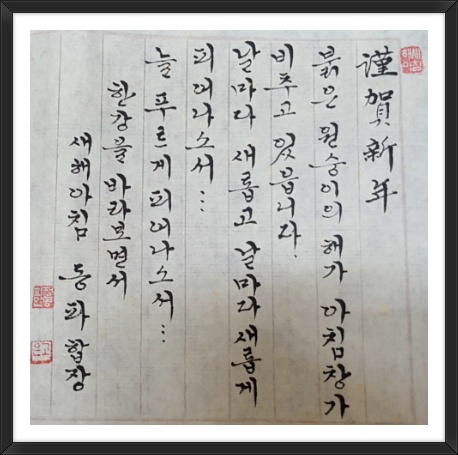 謹賀新年
붉은 원숭이의 해가 아침창가
비추고 있읍니다.
날마다 새롭고 날마다 새롭게
피어나소서...
늘 푸르게 피어나소서...
한강을 바라보면서
새해아침 동파합장